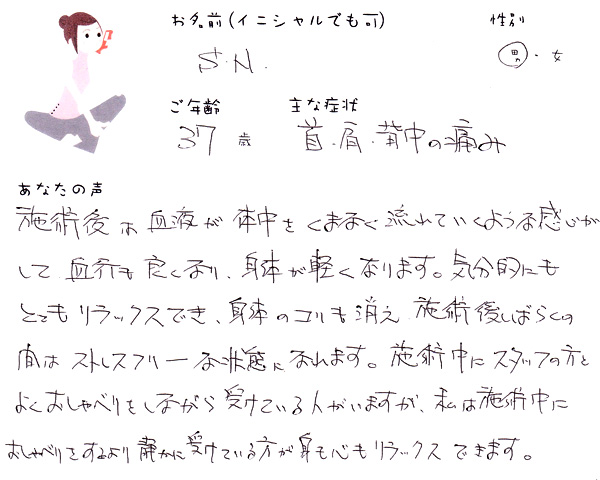 お名前(イニシャルでも可)
性別
S.N.
男・女
ご年齢
主な症状
37 歳
首.肩.背中の痛み
あなたの声
施術後は血液が体中をくまなく流れていくような感じが
して血行も良くなり、身体が軽くなります。気分的にも
とてもリラックスでき、身体のコリも消え施術後しばらくの
間はストレスフリーな状態になれます。施術中にスタッフの方と
よくおしゃべりをしながら受けている人がいますが、私は施術中に
おしゃべりをするより静かに受けている方が身も心もリラックスできます。